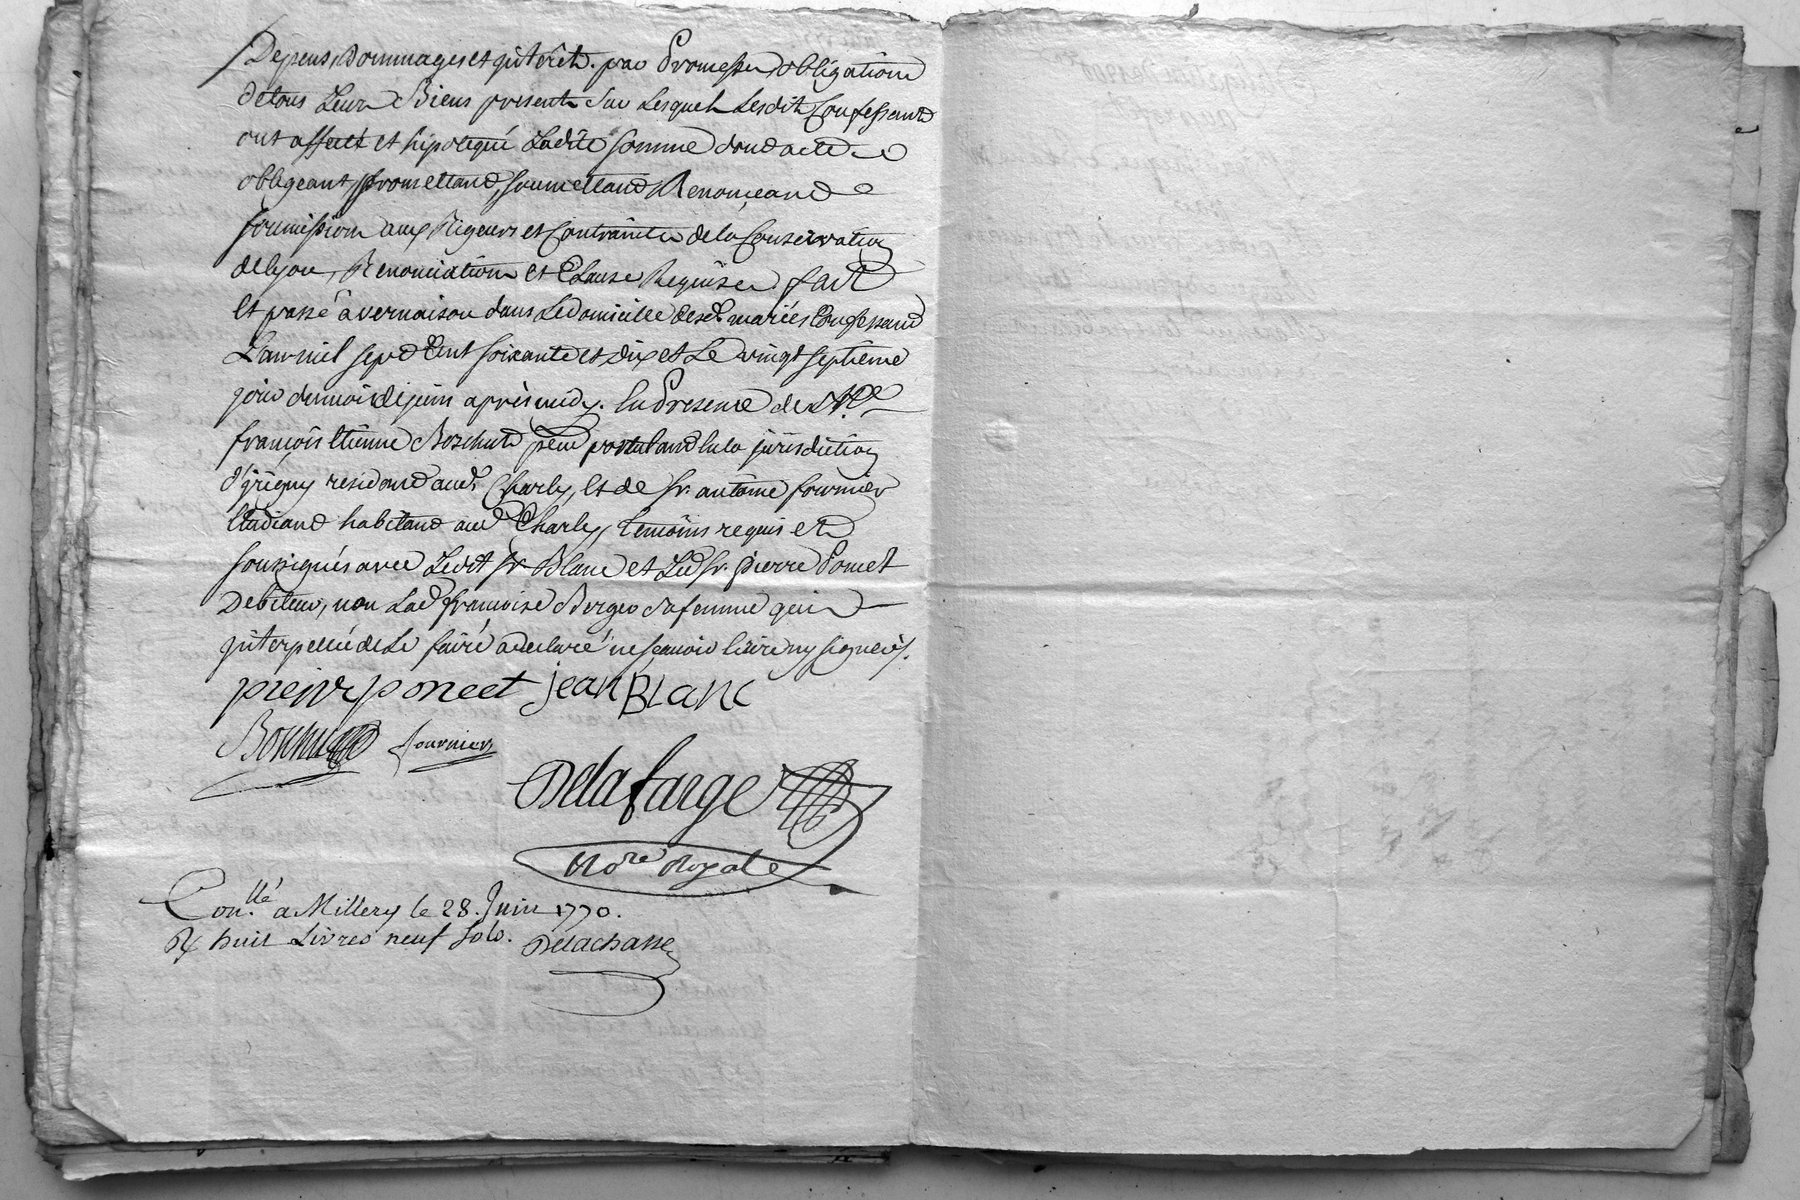 Depens, Dommages et interêts. par Promesse, obligation
de tous Leurs Biens presents sur Lesquels Lesdits Confessants
ont affecté et hipotequé Ladite somme dont acte
obligeant, promettand, soumettand, Renonçeand
soumission aux Rigeurs et Contrainte de la Conservation
de lyon, Renonciation et Clause Requise. fait
et passé à vernaison dans Le domicille desd. mariés Confessand
L'an mil sept Cent soixante et dix et Le vingt septieme
jour du moi de juin après midy. En Presence de Me
françois Etienne postuland en la jurisdiction
d'jrigny residend aud. Charly, et de Sr. antoine fournier
Etudiand habitand aud Charly, temoins requis et
soussignés avec Ledit Sr Blanc et Led Sr. pierre Poncet
Debiteur, non Lad françoise Berger sa femme qui
interpellée de Le fairé a declaré ne scavoir Ecrire ny signer.
pierre poncet jean BLanc
fournier
Delafarge
Nore Royale
Con.llé a Millery le 28. Juin 1770.
R huit Livres neuf sols. Delachasse